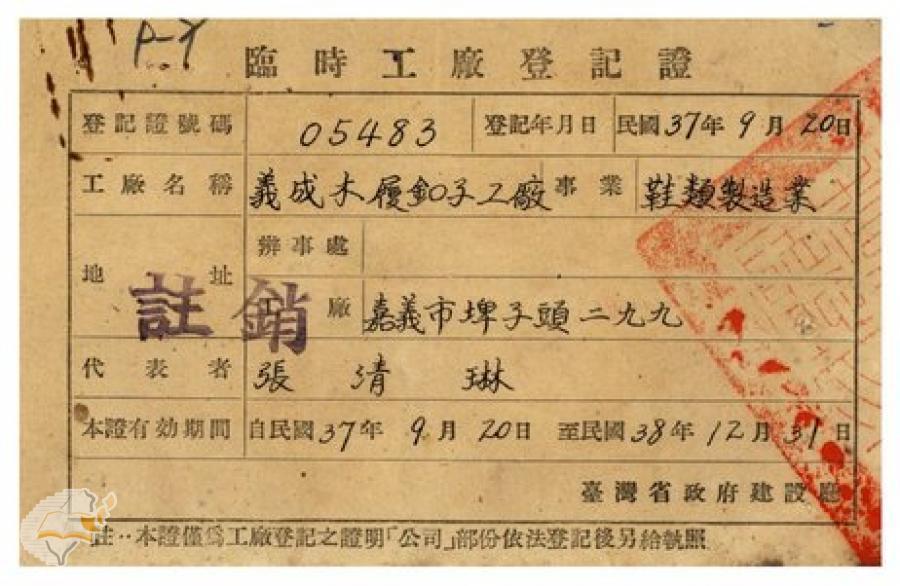 P-Y
臨時工廠登記證
登記證號碼 05483 登記年月日 民國37年9月20日
工廠名稱 義成木屐釦子工廠 事業 鞋類製造業
地址 辦事處
工廠 嘉義市埤子頭二九九
註銷
代表者 張清琳
本證有効期間 自民國37年9月20日 至民國38年12月31日
臺灣省政府建設廳
註：本證僅為工廠登記之證明「公司」部份依法登記後另給執照